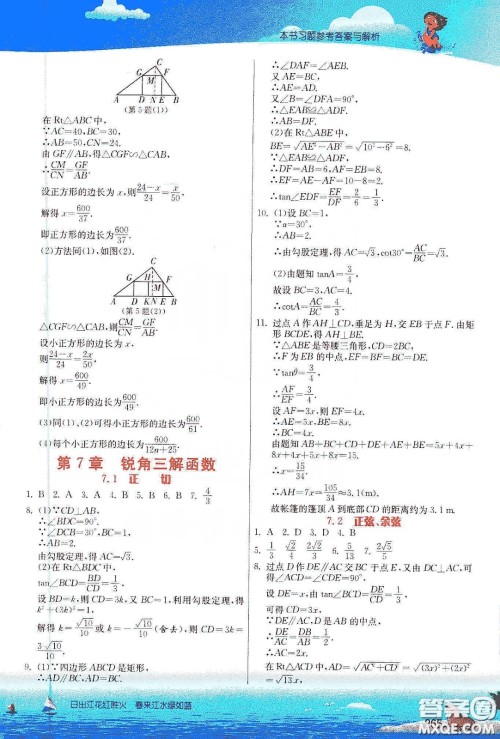 本书习题参考答案与解析
A D N E B
(第5题(1))
在Rt△ABC中,
∵AC=40,BC=30,
∴AB=50,CN=24.
由GF∥AB,得△CGF∽△CAB,
∴CM/CN=GF/AB.
设正方形的边长为x,则(24-x)/24=x/50,
解得x=600/37.
即正方形的边长为600/37.
(2)方法同(1),如图(2).
A D K N E B
(第5题(2))
△CGF∽△CAB,则CM/CN=GF/AB.
设小正方形的边长为x,
则(24-x)/24=2x/50,
解得x=600/49.
即小正方形的边长为600/49.
(3)同(1)、(2)可得小正方形的边长为600/61
(4)每个小正方形的边长为600/(12n+25).
第7章 锐角三解函数
7.1 正 切
1. B 2. A 3. A 4. B 5. B 6. B 7. 4/3
8. (1)∵CD⊥AB,
∴∠BDC=90°.
∵∠DCB=30°,∴∠B=60°.
在Rt△ABC中,∠ACB=90°,
∴∠A=30°,∴AB=2BC=2.
由勾股定理,得AC=√3.
(2)在Rt△BDC中,
tan∠BCD=BD/CD=1/3,
设BD=k,则CD=3k,又BC=1,利用勾股定理,得
k²+(3k)²=1.
解得k=√10/10或k=-√10/10(舍去),则CD=3k=
3√10/10.
9. (1)∵四边形ABCD是矩形,
∴AD∥BC,
∴∠DAF=∠AEB.
又AE=BC,
∴AD=AE.
又∠B=∠DFA=90°,
∴△EAB≌△ADF,
∴AB=DF.
(2)在Rt△ABE中,
BE=√(AE²-AB²)=√(10²-6²)=8.
∵△EAB≌△ADF,
∴DF=AB=6,AF=EB=8.
∴EF=AE-AF=10-8=2.
∴tan∠EDF=EF/DF=2/6=1/3.
10. (1)设BC=1,
∵α=30°,
∴AB=2.
∴由勾股定理,得AC=√3,cot30°=AC/BC=√3.
(2)由题知tanA=3/4,
故设BC=3,AC=4,
∴cotA=AC/BC=4/3.
11. 过点A作AH⊥CD,垂足为H,交EB于点F.由矩
形BCDE,得AH⊥BE.
∵△ABE是等腰三角形,CD=2BC,
∴F为EB的中点,EF=BF=BC.
∵tanθ=3/4,
∴AF/EF=3/4.
设AF=3x,则EF=4x,
∴AE=5x,BE=8x,
∴BC=4x.
由题知AB+BC+CD+DE+AE=5x+4x+
8x+4x+5x=15.4,
∴AH=7x≈3.1m.
故帐篷的篷顶A到底部CD的距离约为3.1m.
7.2 正弦、余弦
1. A 2. D 3. D 4. B
8. 过点D作DE∥AC交BC于点E,又由DC⊥AC,可
得∠ACD=∠CDE=90°.
设DE=x,由tan∠DCE=DE/CD=1/2,
可得CD=2x.
∵DE∥AC,
∴DE/AC=DB/AB=1/2,
∴AC=3x,
日出江花红胜火 春来江水绿如蓝
答案圈